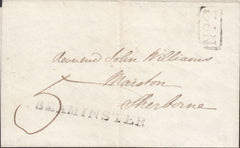 No. 2
Reverend John Williams
Marston
Sherborne
5
BEMINSTER